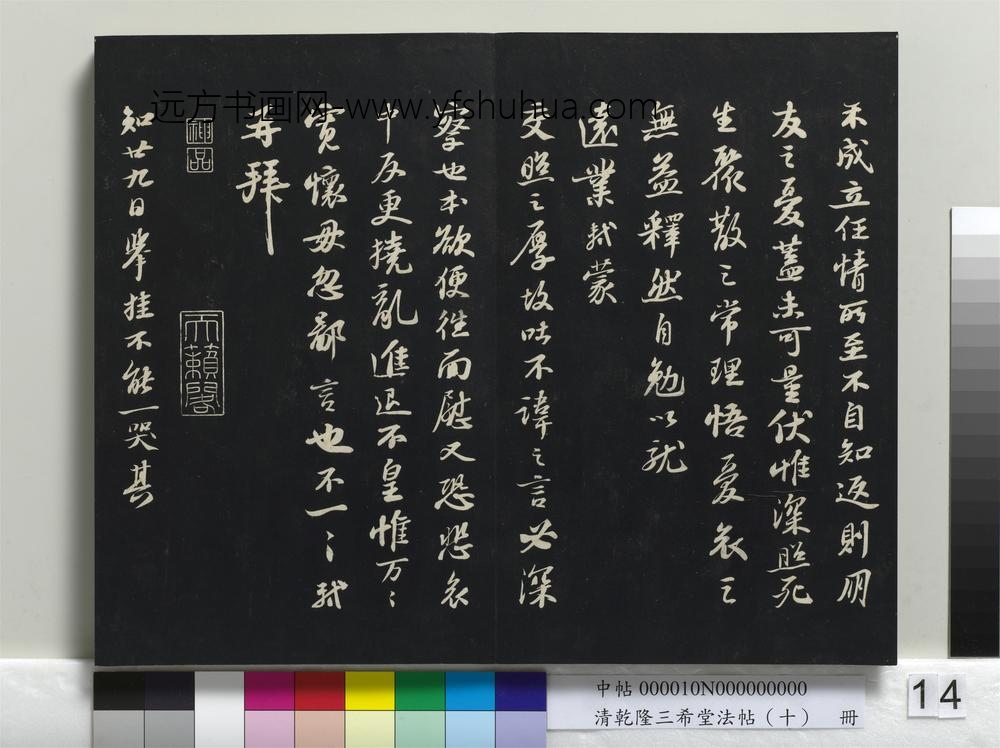 不成立任情所至不自知返則朋
友之憂蓋未可量伏惟深照死
生聚散之常理悟憂哀之
無益釋然自勉以就
遠業軾蒙
交照之厚故吐不諱之言必深
察也本欲便往面慰又恐悲哀
中反更撓亂進退不皇惟万〻
寬懷毋忽鄙言也不一〻軾
再拜
知廿九日舉挂不能一哭其
神品
天籟閣
远方书画网-www.yfshuhua.com
中帖 000010N000000000
清乾隆三希堂法帖（十） 冊
14